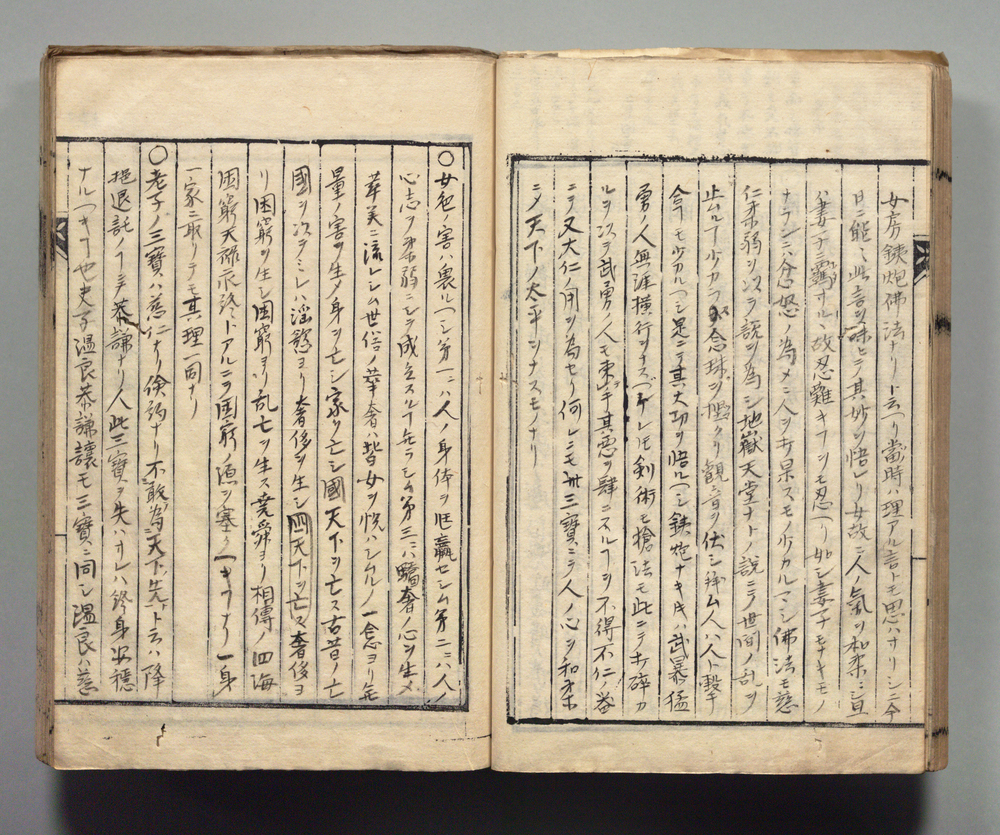 女房鉄炮佛法ナリト云ヘリ當時ハ理アル言トモ思ハナリシニ今
日ニ能〻此言ヲ味ヒテ其妙ヲ悟レリ女故ニ人ノ氣ヲ和柔ニシ且
ハ妻子ニ羈サルヽ故忍難キヿヲモ忍ヘリ如シ妻子モナキモノ
ナランニハ忿怒ノ為メニ人ヲ打果スモノ少カルマシ佛法モ慈
仁柔弱ヲ以ヲ説ヲ為シ地獄天堂ナトノ説ニテ世間ノ乱ヲ
止ムルヿ少カラ 念珠ヲ クリ觀音ヲ伏シ拝ム人ハ人ト撃
合フモ少カルヘシ是ニテ其大功ヲ悟ルヘシ鉄炮ナキ片ハ武暴猛
勇ノ人無涯横行ヲナスヘケレ圧剣術モ搶法モ此ニテ打碎カ
ルヲ以ヲ武勇ノ人モ束手其悪ヲ肆ニスルヿヲ不得不仁ノ器
ニテ又大仁ノ用ヲ為セリ何レニモ卅三寶ニテ人ノ心ヲ和柔
ニメ天下ノ太平ヲナスモノナリ
〇女色ノ害ハ裏ルヘシ第一ニハ人ノ身体ヲ尫羸セシム第二ニハ人ノ
心志ヲ柔弱ニシテ成立スルヿ無ラシム第三ニハ驕奢ノ心ヲ生メ
華美ニ流レシム世俗ノ華奢ハ皆女ヲ悦ハシムルノ一念ヨリ無
量ノ害ヲ生メ身ヲ亡シ家ヲ亡シ國天下ヲ亡ス古昔ノ亡
國ヲ以テミレハ淫慾ヨリ奢侈ヲ生シ四天下ヲ亡ス奢侈ヨ
リ困窮ヲ生シ困窮ヨリ乱亡ヲ生ス堯舜ヨリ相傳ノ四海
困窮天禄永終トアルニテ困窮ノ源ヲ塞クヘキヿナリ一身
一家ニ取リテモ其理一同ナリ
〇老子ノ三寶ハ慈仁ナリ倹約ナリ不敢為天下先ト云ハ降
挹退託ノヿニテ恭謙ナリ人此三寶ヲ失ハサレハ終身安穏
ナルヘキヿ也夫子温良恭謙讓モ三寶ニ同シ温良ハ慈